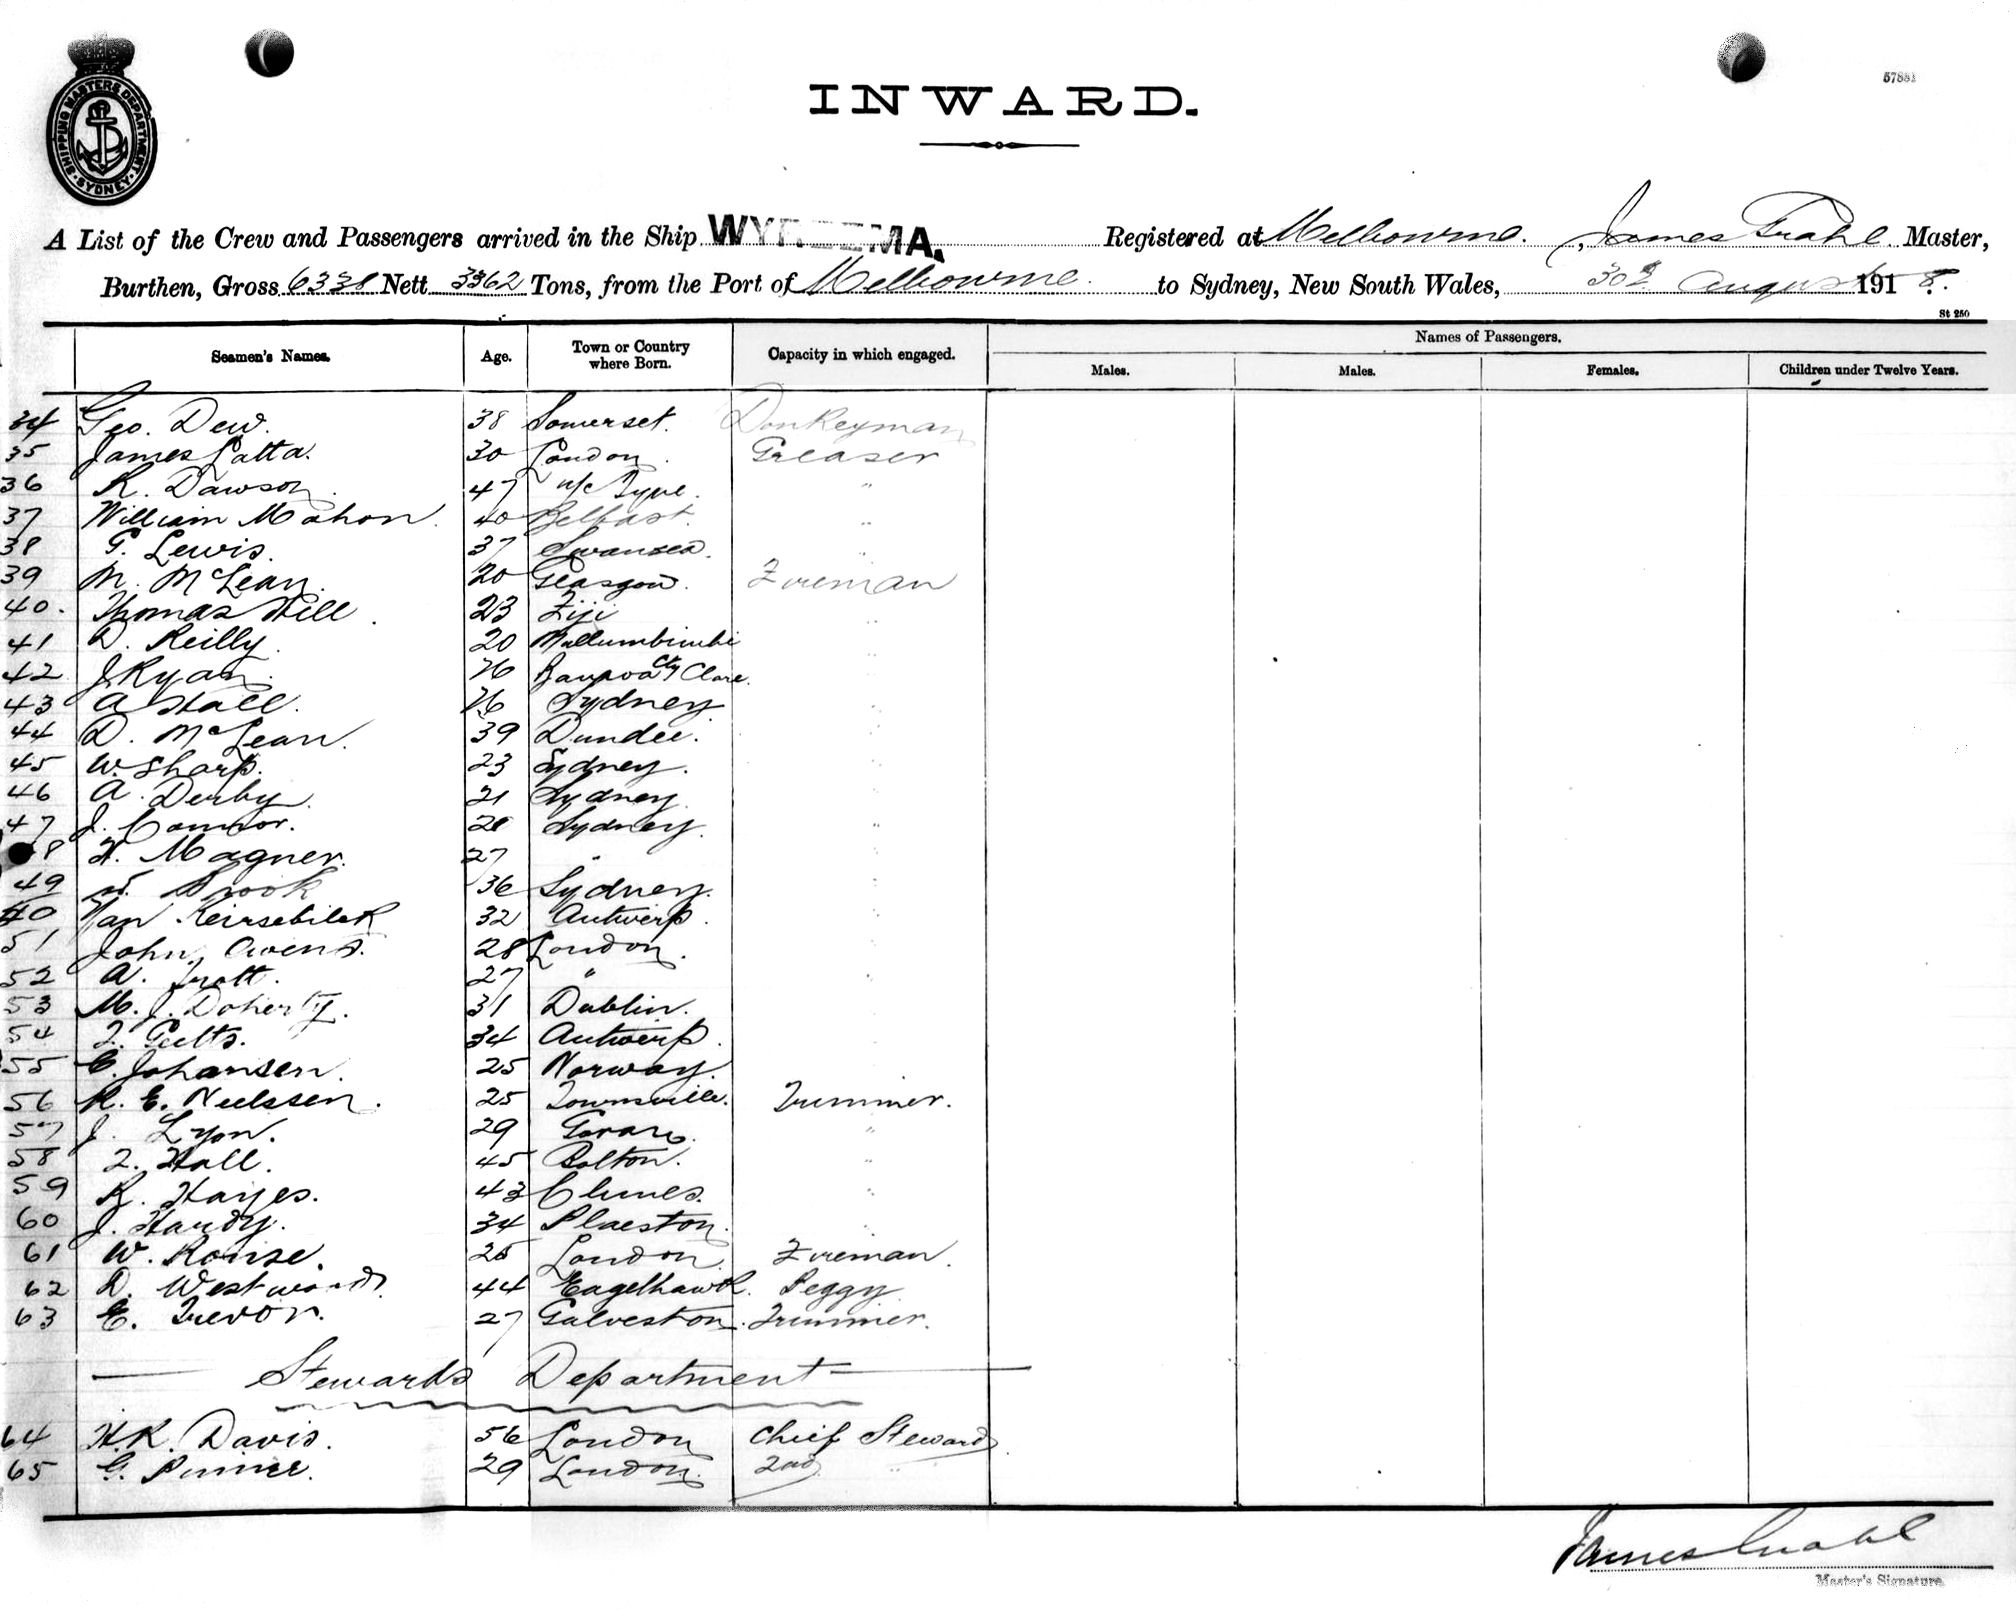 57881
INWARD.
SHIPPING MASTERS DEPARTMENT SYDNEY
A List of the Crew and Passengers arrived in the Ship WYREEMA. Registered at Melbourne. , James Grahl. Master,
Burthen, Gross 6338 Nett 3362 Tons, from the Port of Melbourne. to Sydney, New South Wales, 30th August 1918.
St 250
Seamen's Names. Age. Town or Country where Born. Capacity in which engaged. Names of Passengers.
Males. Males. Females. Children under Twelve Years.
34 Geo. Dew. 38 Somerset. Donkeyman
35 James Latta. 30 London. Greaser
36 R. Dawson. 47 n/c Tyne. "
37 William Mahon. 40 Belfast. "
38 G. Lewis. 37 Swansea. "
39 M. McLean. 20 Glasgow. Fireman
40. Thomas Hill. 23 Fiji "
41 D. Reilly. 20 Mullumbimbi "
42 J Ryan. 26 Cty Clare. "
43 A Hall. 26 Sydney "
44 D. McLean. 39 Dundee. "
45 W. Sharp. 23 Sydney. "
46 A. Derby. 21 Sydney. "
47 J. Connor. 20 Sydney. "
48 H. Magner. 27 " "
49 Brook 36 Sydney. "
50 Van Keirsebilck 32 Antwerp. "
51 John Owens. 28 London. "
52 A. Trott. 27 " "
53 M. J. Doherty. 31 Dublin. "
54 Geets. 34 Antwerp. "
55 E. Johansen. 25 Norway. "
56 R. E. Neilssen. 25 Townsville. Trimmer.
57 J. Lyon. 29 Govan. "
58 Hall. 45 Bolton. "
59 R. Hayes. 43 Clunes. "
60 J. Hardy. 34 Plaeston. "
61 W. Rouse. 25 London. Fireman.
62 D. Westwood. 44 Eagelhawk. Peggy
63 E. Trevor. 27 Galveston. Trimmer.
Stewards Department
64 H.R. Davis. 56 London Chief Steward.
65 G. 29 London. 2nd "
James Grahl
Master's Signature.